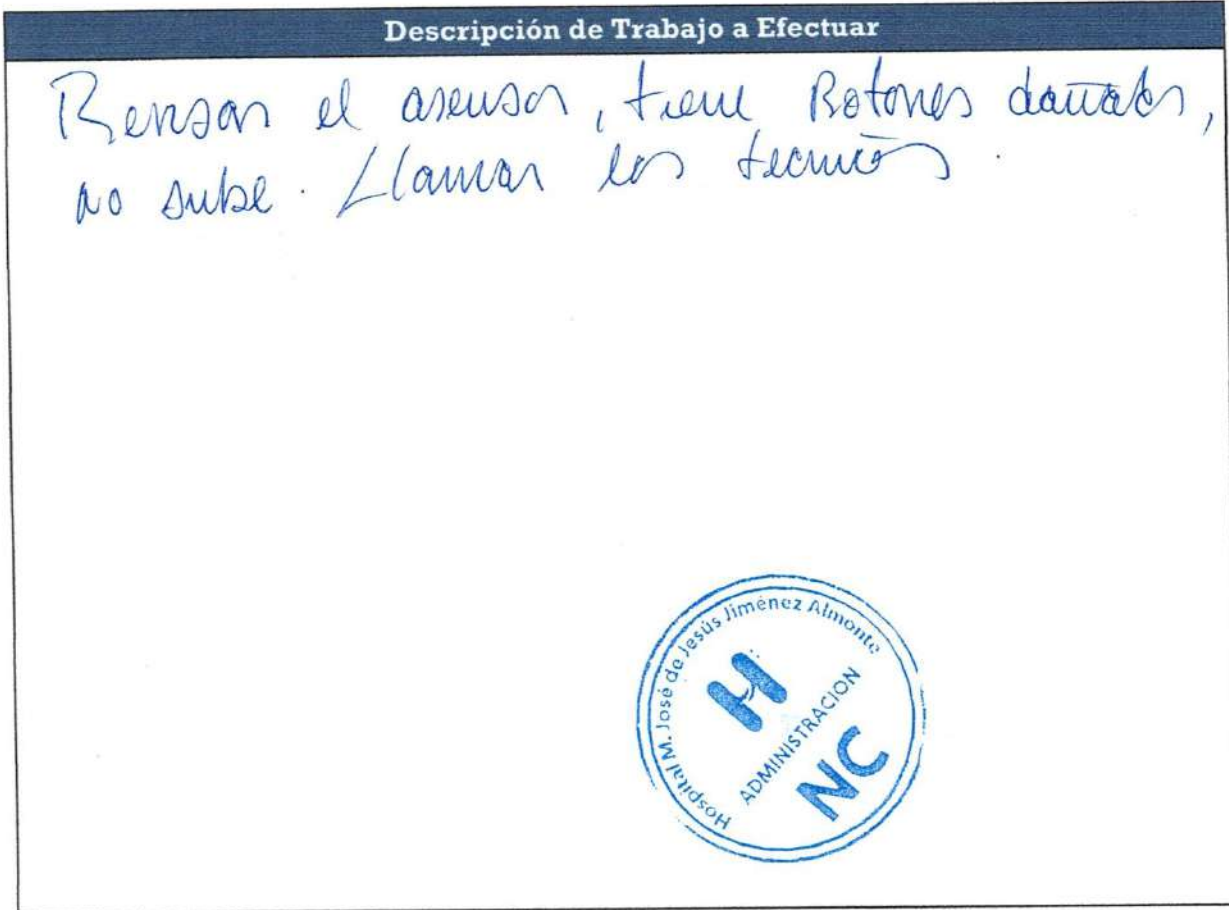 Descripción de Trabajo a Efectuar
Revisar el asensor, tiene Botones dañados,
no sube. Llamar los tecnicos.
Hospital M. José de Jesús Jiménez Almonte
H
ADMINISTRACION
NC